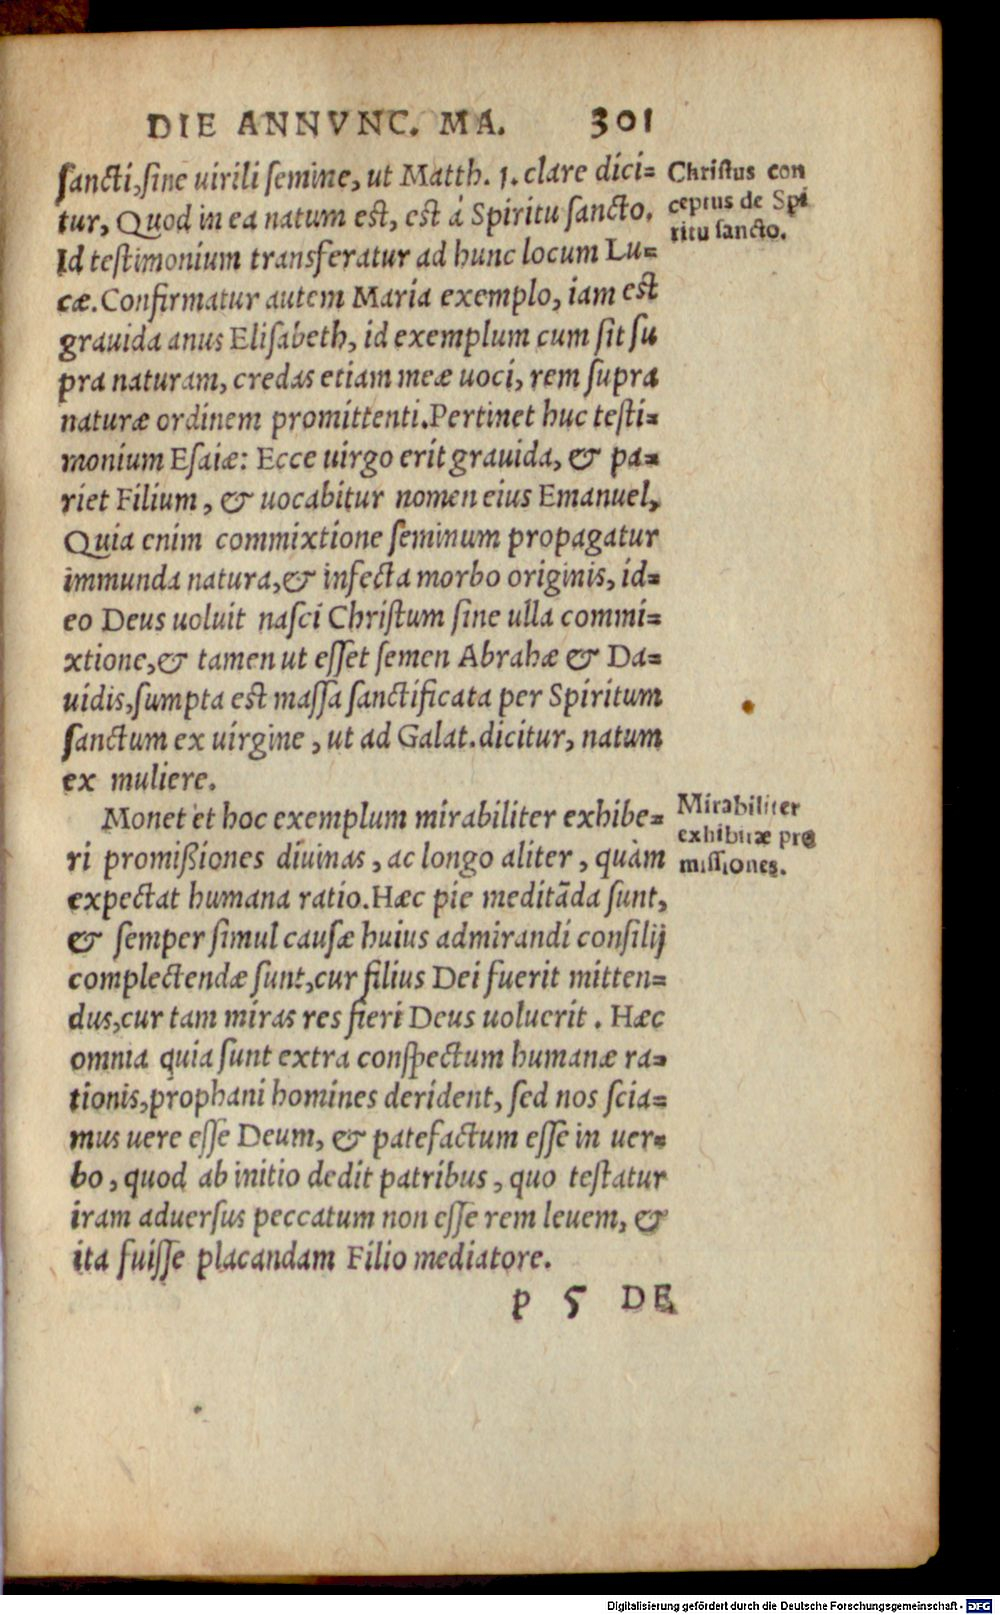 DIE ANNVNC. MA. 301
sancti, sine uirili semine, ut Matth. 1. clare dici=
tur, Quod in ea natum est, est á Spiritu sancto.
Id testimonium transferatur ad hunc locum Lu=
cæ. Confirmatur autem Maria exemplo, iam est
grauida anus Elisabeth, id exemplum cum sit su
pra naturam, credas etiam meæ uoci, rem supra
naturæ ordinem promittenti. Pertinet huc testi=
monium Esaiæ: Ecce uirgo erit grauida, & pa=
riet Filium, & uocabitur nomen eius Emanuel,
Quia enim commixtione seminum propagatur
immunda natura, & infecta morbo originis, id=
eo Deus uoluit nasci Christum sine ulla commi=
xtione, & tamen ut esset semen Abrahæ & Da=
uidis, sumpta est massa sanctificata per Spiritum
sanctum ex uirgine, ut ad Galat. dicitur, natum
ex muliere.
Christus con
ceptus de Spi
ritu sancto.
Monet et hoc exemplum mirabiliter exhibe=
ri promißiones diuinas, ac longo aliter, quàm
expectat humana ratio. Hæc pie meditãda sunt,
& semper simul causæ huius admirandi consilij
complectendæ sunt, cur filius Dei fuerit mitten=
dus, cur tam miras res fieri Deus uoluerit. Hæc
omnia quia sunt extra conspectum humanæ ra=
tionis, prophani homines derident, sed nos scia=
mus uere esse Deum, & patefactum esse in uer=
bo, quod ab initio dedit patribus, quo testatur
iram aduersus peccatum non esse rem leuem, &
ita fuisse placandam Filio mediatore.
Mirabiliter
exhibitæ pro
missiones.
p 5 DE
Digitalisierung gefördert durch die Deutsche Forschungsgemeinschaft - DFG